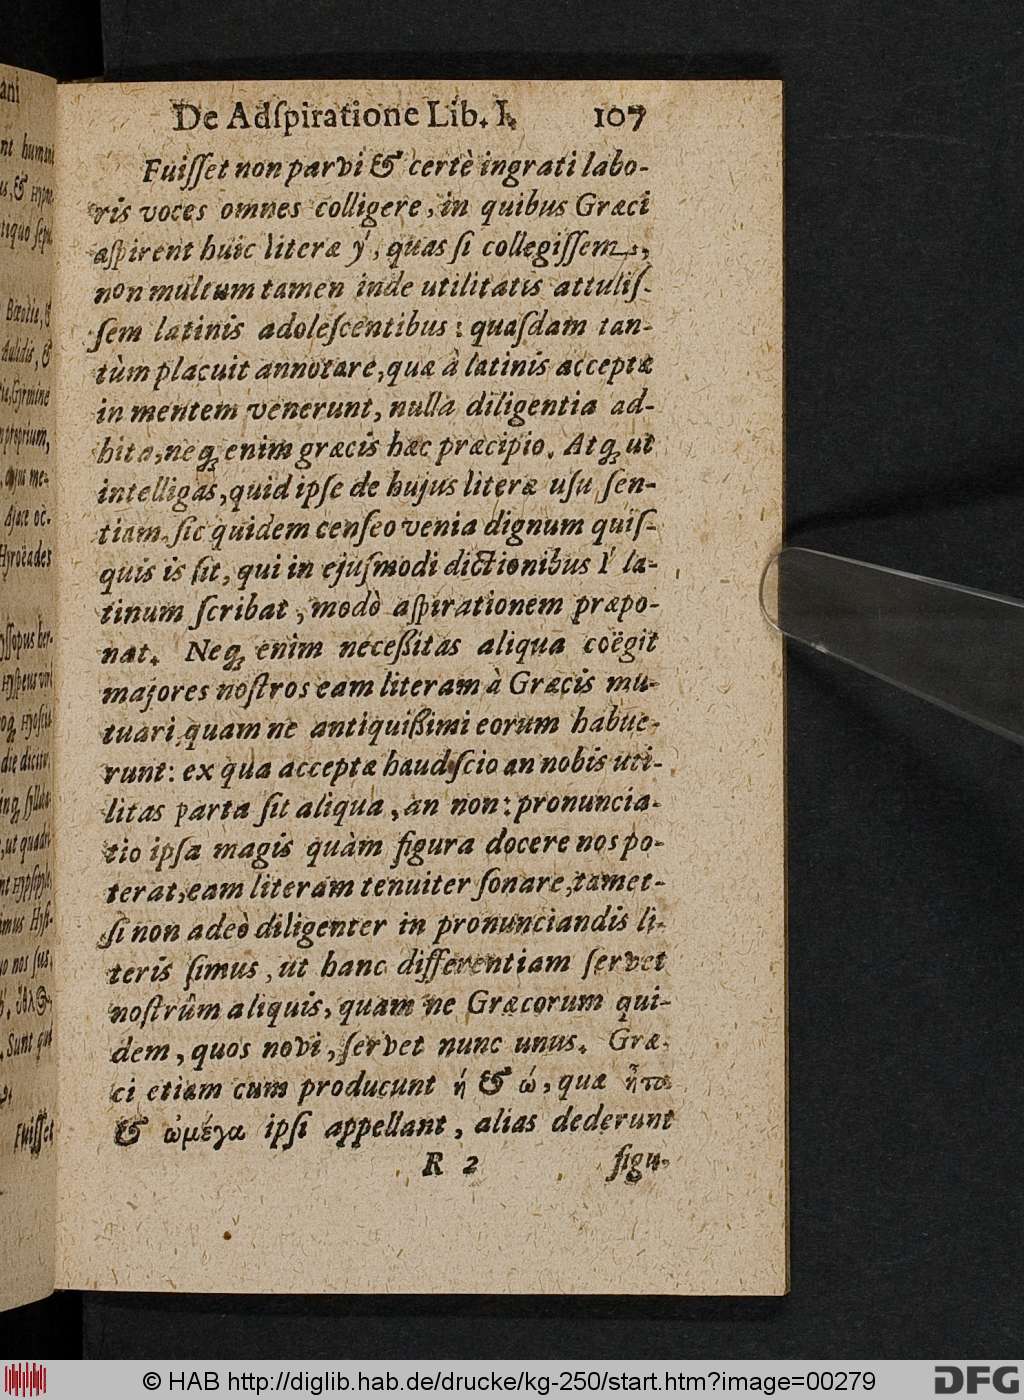 De Adſpiratione Lib. I. 107
Fuiſſet non parvi & certè ingrati labo-
ris voces omnes colligere, in quibus Græci
aſpirent huic literæ ý, quas ſi collegiſſem,
non multum tamen inde utilitatis attuliſ-
ſem latinis adoleſcentibus: quaſdam tan-
tùm placuit annotare, quæ à latinis acceptæ
in mentem venerunt, nulla diligentia ad-
hita, neq; enim græcis hæc præcipio. Atq; ut
intelligas, quid ipſe de hujus literæ uſu ſen-
tiam, ſic quidem cenſeo venia dignum quiſ-
quis is ſit, qui in ejuſmodi dictionibus Ý la-
tinum ſcribat, modò aſpirationem præpo-
nat. Neq; enim neceßitas aliqua coëgit
majores noſtros eam literam à Græcis mu-
tuari quam ne antiquißimi eorum habue-
runt: ex qua accepta haud ſcio an nobis uti-
litas parta ſit aliqua, an non: pronuncia-
tio ipſa magis quàm figura docere nos po-
terat, eam literam tenuiter ſonare, tamet-
ſi non adeò diligenter in pronunciandis li-
teris ſimus, ut hanc differentiam ſervet
noſtrûm aliquis, quam ne Græcorum qui-
dem, quos novi, ſervet nunc unus. Græ-
ci etiam cum producunt ή & ώ, quæ ἦτα
& ὠμέγα ipſi appellant, alias dederunt
R 2 figu-
ani
nt human
tiquo ſepe
Bœotiæ, &
Aulidis, &
Gyrmine
proprium,
cujus me-
Ajace oc-
Hyroëades
yſſopus her-
die dicitur
ut quadri
o nos ſus,
Sunt qui
Fuiſſet
© HAB http://diglib.hab.de/drucke/kg-250/start.htm?image=00279
DFG